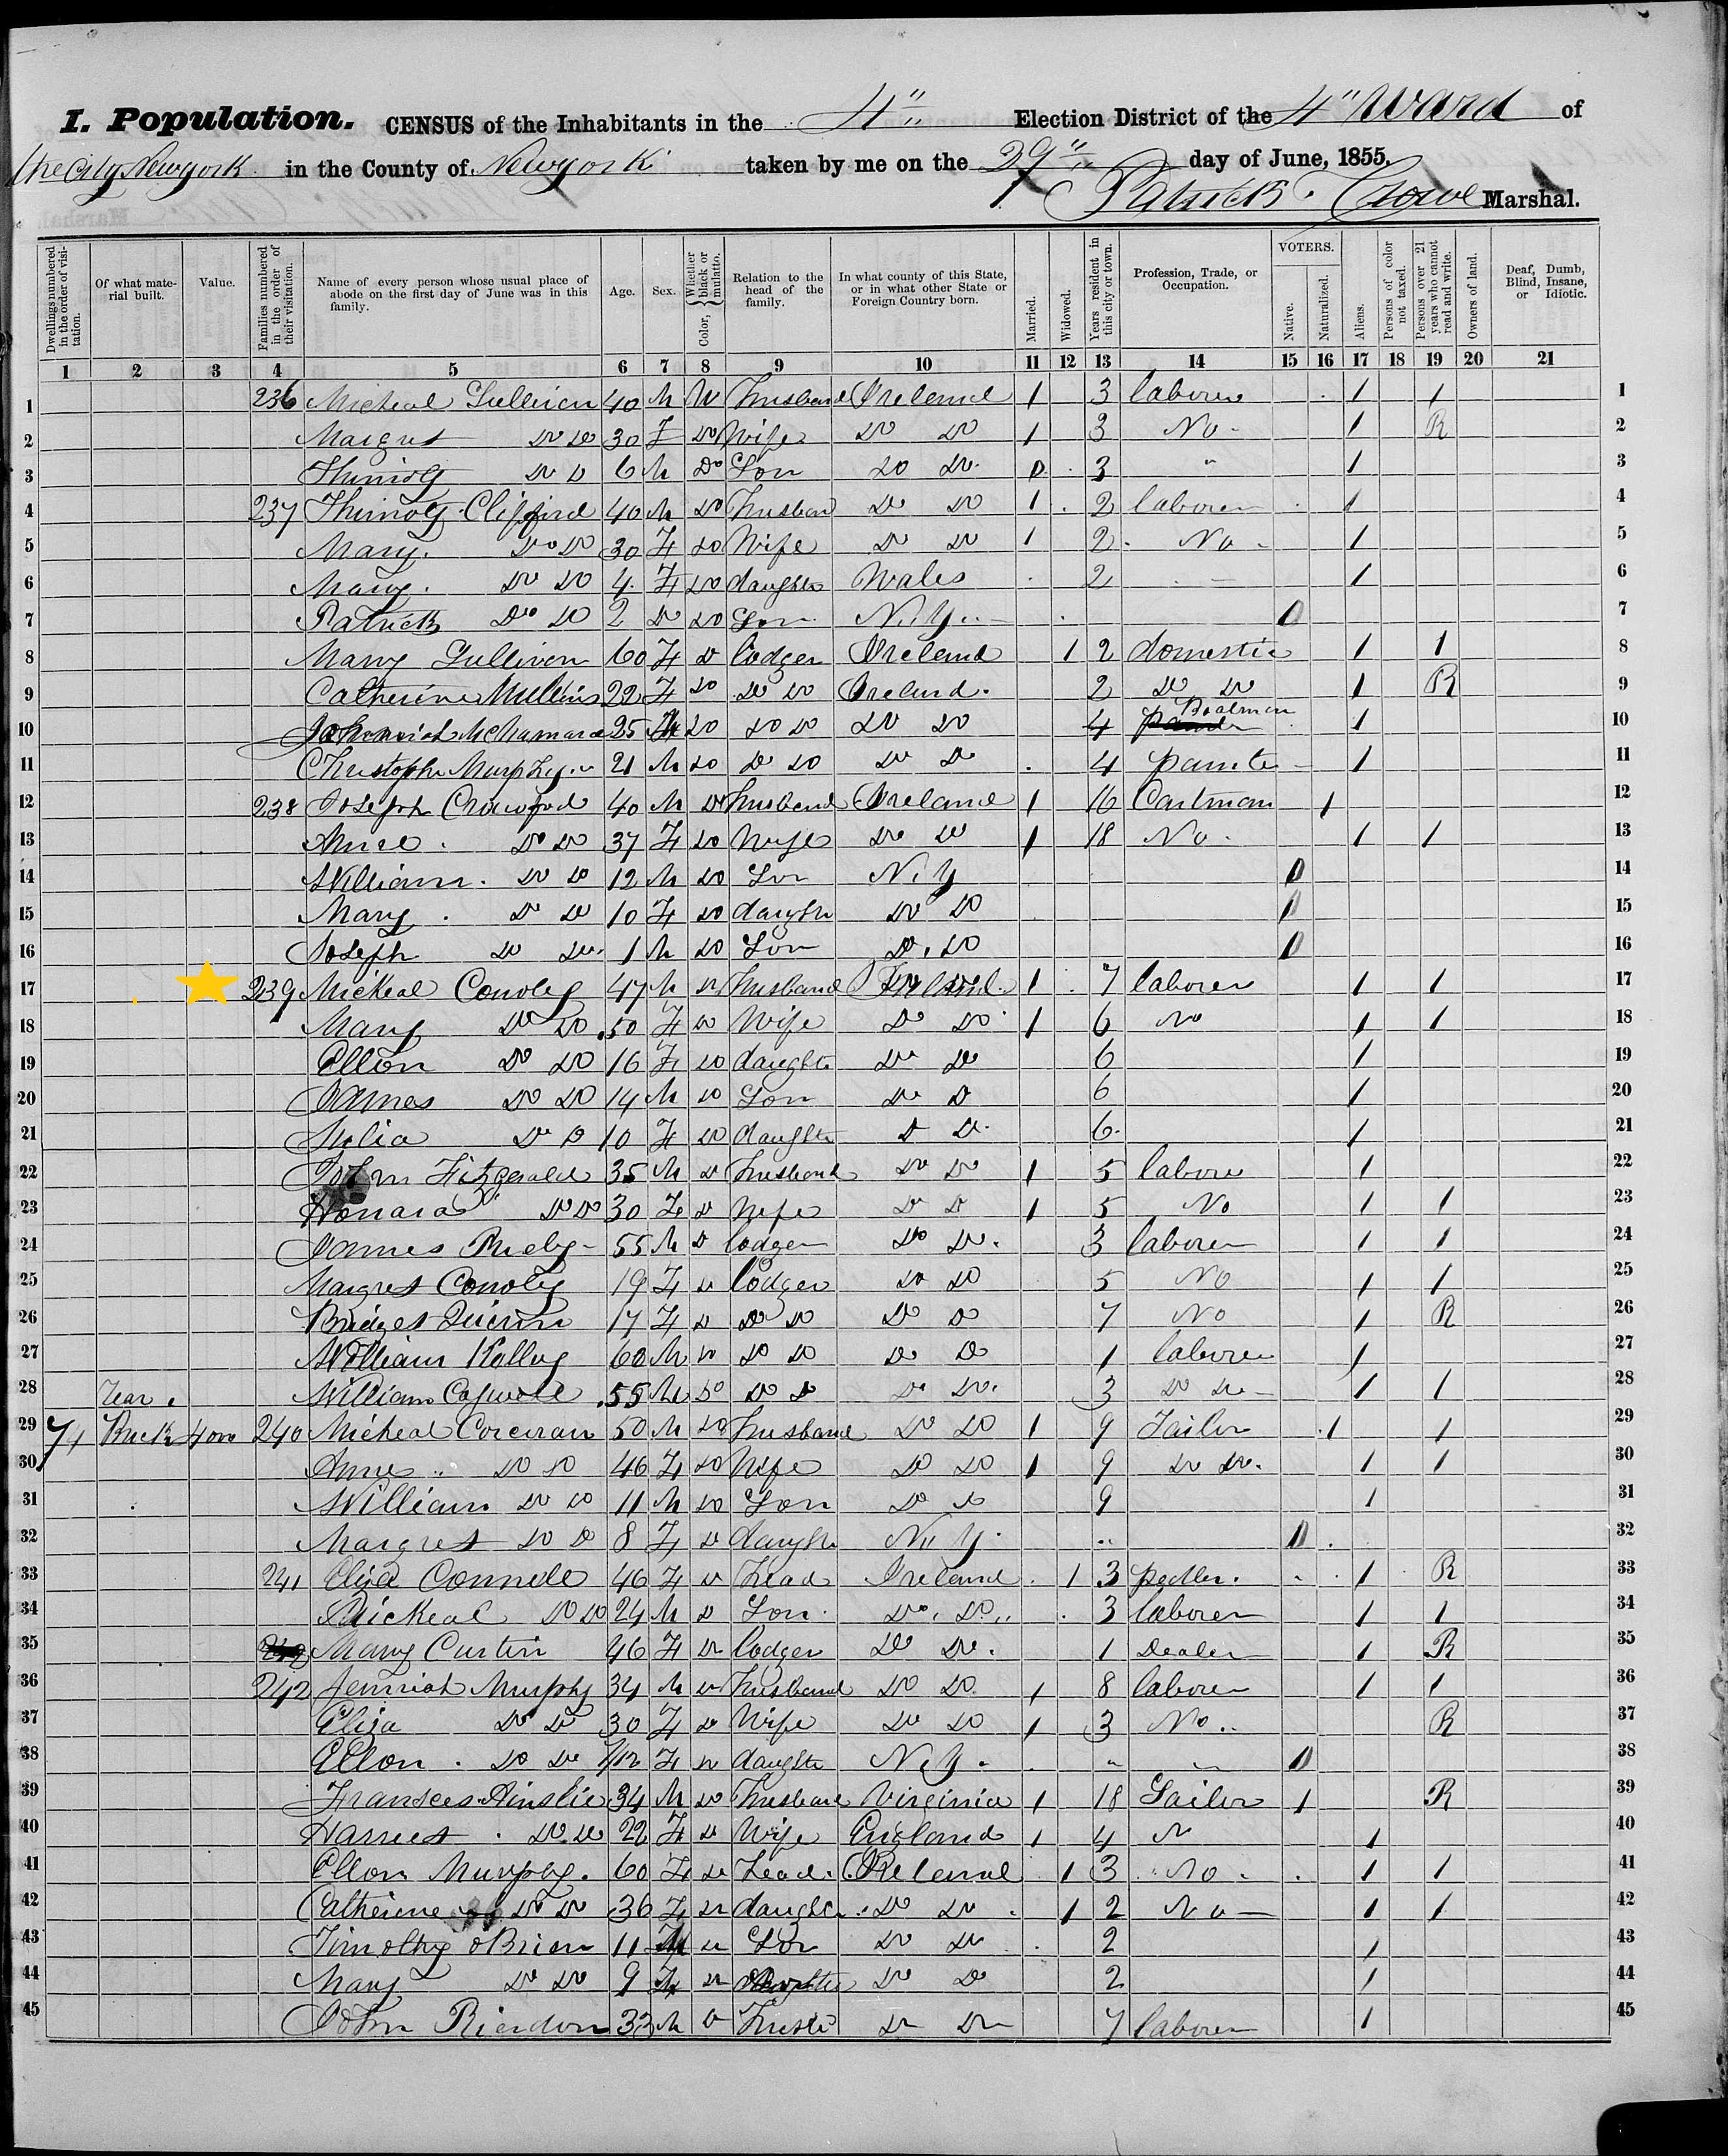 I. Population. CENSUS of the Inhabitants in the 4" Election District of the 4" Ward of
the City New york in the County of New york taken by me on the 29" day of June, 1855.
Patrick Crowe Marshal.
Dwellings numbered in the order of visitation. Of what material built. Value. Families numbered in the order of their visitation. Name of every person whose usual place of abode on the first day of June was in this family. Age. Sex. Color, Whether black or mulatto. Relation to the head of the family. In what county of this State, or in what other State or Foreign Country born. Married. Widowed. Years resident in this city or town. Profession, Trade, or Occupation. VOTERS. Native. Naturalized. Aliens. Persons of color not taxed. Persons over 21 years who cannot read and write. Owners of land. Deaf, Dumb, Blind, Insane, or Idiotic.
1 2 3 4 5 6 7 8 9 10 11 12 13 14 15 16 17 18 19 20 21
1 236 Micheal Sullivan 40 M W Husband Ireland 1 3 laborer 1 1 1
2 Margret Do Do 30 F Do Wife Do Do 1 3 No 1 R 2
3 Do D 6 M Do Son Do Do 3 " 1 3
4 237 40 M Do Husban Do Do 1 2 laborer 1 4
5 Mary Do Do 30 F Do Wife Do Do 1 2 No 1 5
6 Mary Do Do 4 F Do daughte Wales 2 1 6
7 Patrick Do Do 2 Do Do Son N.Y. 7
8 Mary Sulliven 60 F D lodger Ireland 1 2 domestic 1 1 8
9 Catherine Mullins 22 F Do Do Do Ireland 2 Do Do 1 R 9
10 McNamara 25 M Do Do Do Do Do 4 Boatman 1 10
11 Christophe Murphy 21 M Do Do Do Do Do 4 painte 1 11
12 238 Joseph Crawford 40 M Do husband Ireland 1 16 Cartman 1 12
13 Anne Do Do 37 F Do Wife Do Do 1 18 No 1 1 13
14 William Do Do 12 M Do Son N.Y 14
15 Mary Do Do 10 F Do daughte Do Do 15
16 Joseph Do Do 1 M Do Son Do Do 16
17 239 Mickeal Conoley 47 M Do husband Ireland 1 7 laborer 1 1 17
18 Mary Do Do 50 F Do Wife Do Do 1 6 No 1 1 18
19 Ellon Do Do 16 F Do daughte Do Do 6 1 19
20 James Do Do 14 M Do Son Do D 6 1 20
21 Julia Do D 10 F Do daughte D Do 6 1 21
22 John Fitzgerald 35 M D husband Do Do 1 5 labore 1 22
23 Honara Do Do 30 F D wife Do D 1 5 No 1 1 23
24 James 55 M D lodger Do Do 3 laborer 1 1 24
25 Margret Conoley 19 F D lodger Do Do 5 No 1 1 25
26 Bridget 17 F D Do Do Do D 7 No 1 R 26
27 William Kelley 60 M Do Do Do Do Do 1 laborer 1 27
28 rear William 55 M Do Do D Do Do 3 Do Do 1 1 28
29 74 Brick 400 240 Micheal Corcoran 50 M Do husband Do Do 1 9 Tailor 1 1 29
30 Anne Do Do 46 F Do Wife Do Do 1 9 Do Do 1 1 30
31 William Do Do 11 M Do Son Do Do 9 1 31
32 Margret Do D 8 F D daughte N.Y. 32
33 241 Eliza Connell 46 F D head Ireland 1 3 pedler 1 R 33
34 Mickeal Do Do 24 M D Son Do Do 3 laborer 1 1 34
35 Mary Curtin 46 F Do lodger Do Do 1 Dealer 1 R 35
36 242 Jemriah Murphy 34 M Do husband Do Do 1 8 laborer 1 1 36
37 Eliza Do Do 30 F D Wife Do Do 1 3 No R 37
38 Ellon Do Do /12 F Do daughte N.Y. 38
39 Fransces Ainslie 34 M Do Husband Virginia 1 18 Sailor 1 R 39
40 Harriet Do Do 22 F D Wife England 1 4 N 1 40
41 Ellon Murphy 60 F Do head Ireland 1 3 No 1 1 41
42 Catherine Do Do 36 F Do daughte Do Do 1 2 No 1 1 42
43 Timothy OBrien 11 M Do Son Do Do 2 1 43
44 Mary Do Do 9 F Do Do D 2 1 44
45 John Rierdon 33 M D Do Do 7 laborer 1 45